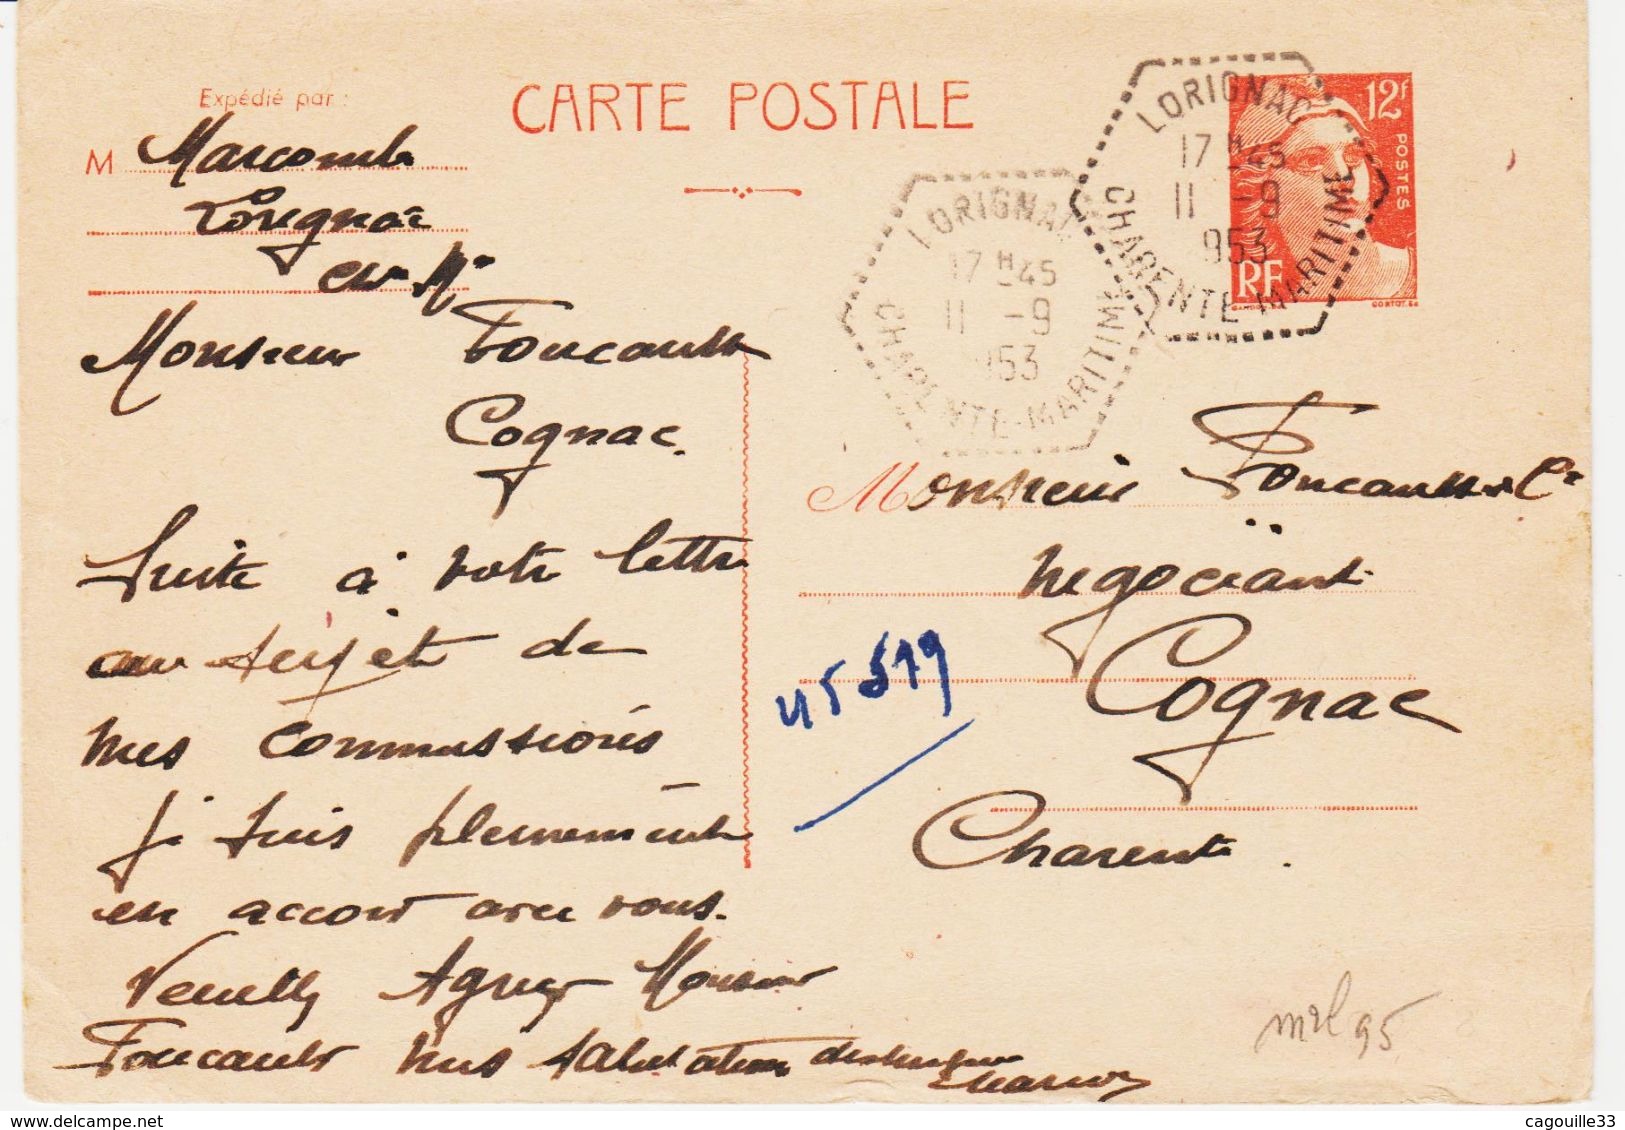 Expédié par :
CARTE POSTALE
M Marcomb
Lorignac
Ch Mme
12F
POSTES
RF
LORIGNAC
17 H 45
11 -9
953
CHARENTE-MARITIME
LORIGNAC
17 H 45
11 -9
953
CHARENTE-MARITIME
Monsieur Foucault
Cognac.
Suite à votre lettre
au sujet de
mes commissions
je suis pleinement
en accord avec vous.
Veuillez Agréer Monsieur
Foucault mes salutations distinguées
Monsieur Foucault & Cie
négociant
Cognac
Charente.
45519
95
cagouille33